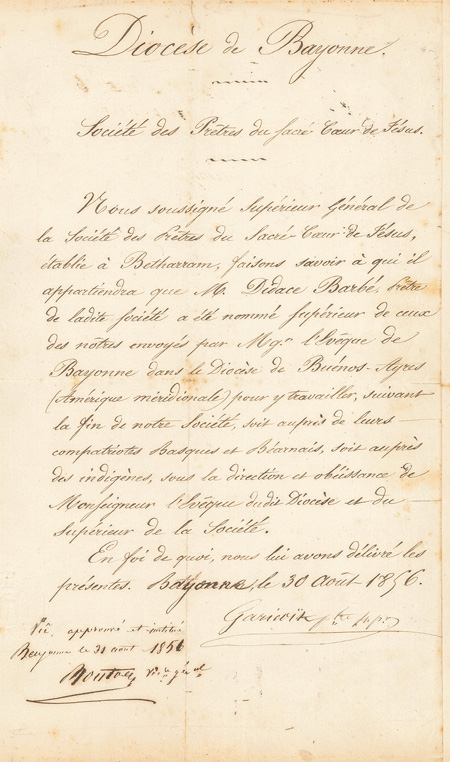 Diocèse de Bayonne.
Société des Prêtres du Sacré Cœur de Jésus.
Nous soussigné Supérieur Général de
la Société des Prêtres du Sacré-Cœur de Jésus,
établie à Betharram, faisons savoir à qui il
appartiendra que M. Didace Barbé, Prêtre
de ladite Société a été nommé Supérieur de ceux
des nôtres envoyés par Mgr l'Evêque de
Bayonne dans le Diocèse de Buénos-Ayres
(Amérique méridionale) pour y travailler, suivant
la fin de notre Société, soit auprès de leurs
compatriotes Basques et Béarnais, soit auprès
des indigènes, sous la direction et obéissance de
Monseigneur l'Evêque dudit Diocèse et du
Supérieur de la Société.
En foi de quoi, nous lui avons délivré les
présentes. Bayonne, le 30 Août 1856.
Garicoïts ptre supr
Vu, approuvé et
Bayonne le 31 août 1856
vic. gén.